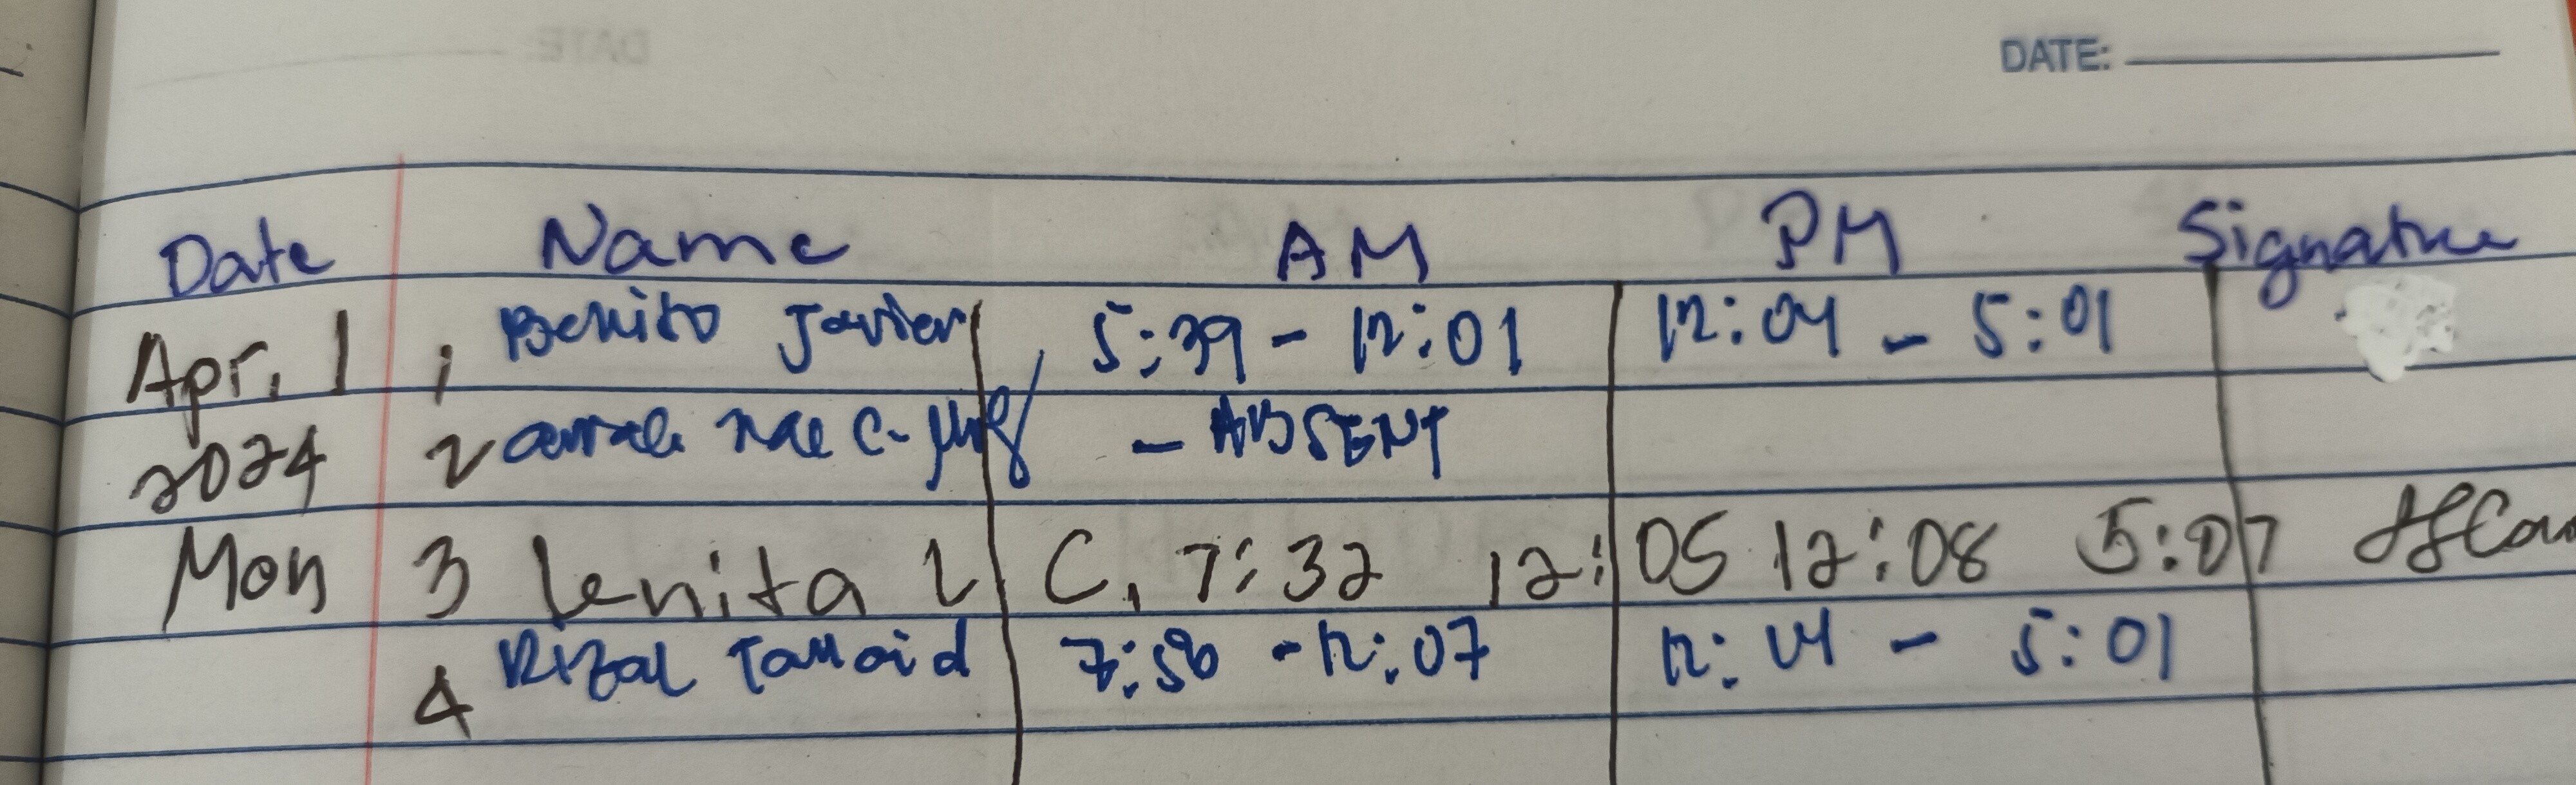 DATE:
Date Name AM PM Signature
Apr. 1 1 Benito Javier 5:39 - 12:01 12:04 - 5:01
2024 2 C. - ABSENT
Mon 3 lenita L C. 7:32 12:05 12:08 5:07
4 Rizal 7:50 - 12:07 12:14 - 5:01